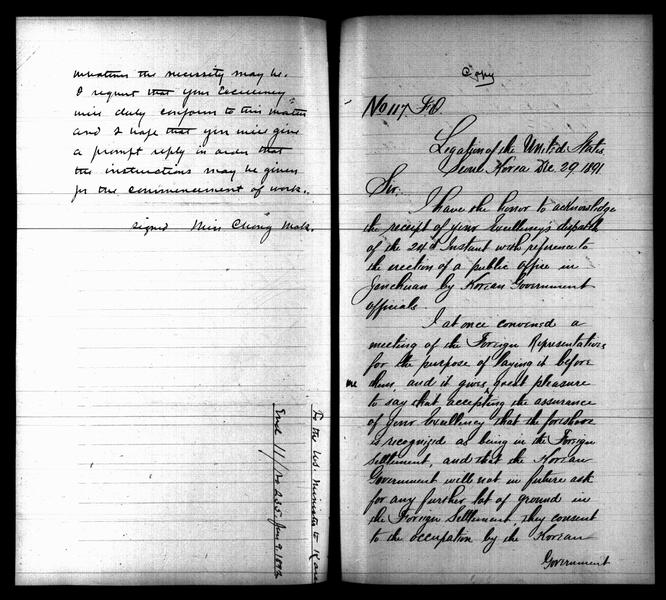 whatever the necessity may be.
I request that your Excellency
will duly conform to this matter
and I hope that you will give
a prompt reply in order that
the instructions may be given
for the commencement of work.
signed Min Chong Mok.
To the U.S. Minister to Korea
Encl 1/ No 235. Jan 9. 1892
Copy
No 117 F.O.
Legation of the United States
Seoul Korea Dec. 29 1891
Sir:
I have the honor to acknowledge
the receipt of your Excellency's dispatch
of the 24th Instant with reference to
the erection of a public office in
Jenchuan by Korean Government
officials.
I at once convened a
meeting of the Foreign Representatives
for the purpose of laying it before
them, and it gives me great pleasure
to say that accepting the assurance
of Your Excellency that the foreshore
is recognized as being in the Foreign
Settlement, and that the Korean
Government will not in future ask
for any further lot of ground in
the Foreign Settlement, they consent
to the occupation by the Korean
Government